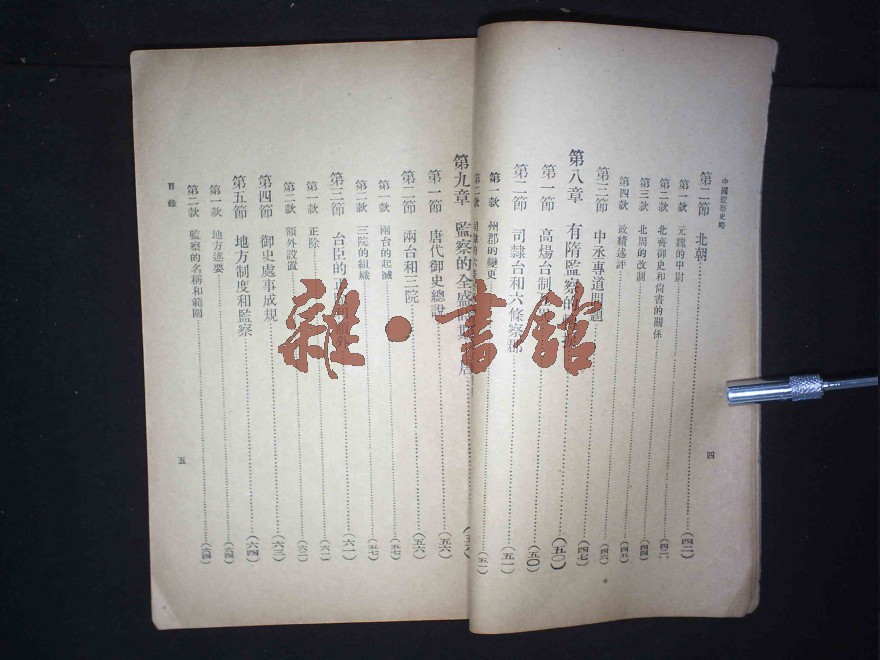 中國監察史略
第二節 北朝……(四二)
第一款 元魏的中尉……(四二)
第二款 北齊御史和尙書的關係……(四三)
第三款 北周的改制……(四四)
第四款 政績述評……(四五)
第三節 中丞專道問題……(四六)
第八章 有隋監察的……(五〇)
第一節 高煬台制……(五〇)
第二節 司隸台和六條察郡……(五一)
第一款 州郡的變更……(五一)
第二款 司隸
四
第九章 監察的全盛
第一節 唐代御史總說……(五六)
第二節 兩台和三院……(五六)
第一款 兩台的起滅……(五七)
第二款 三院的組織……(五七)
第三節 台臣的……(六一)
第一款 正除……(六一)
第二款 額外設置……(六二)
第四節 御史處事成規……(六三)
第五節 地方制度和監察……(六四)
第一款 地方述要……(六四)
第二款 監察的名稱和範圍……(六四)
目錄
五
雜·書館